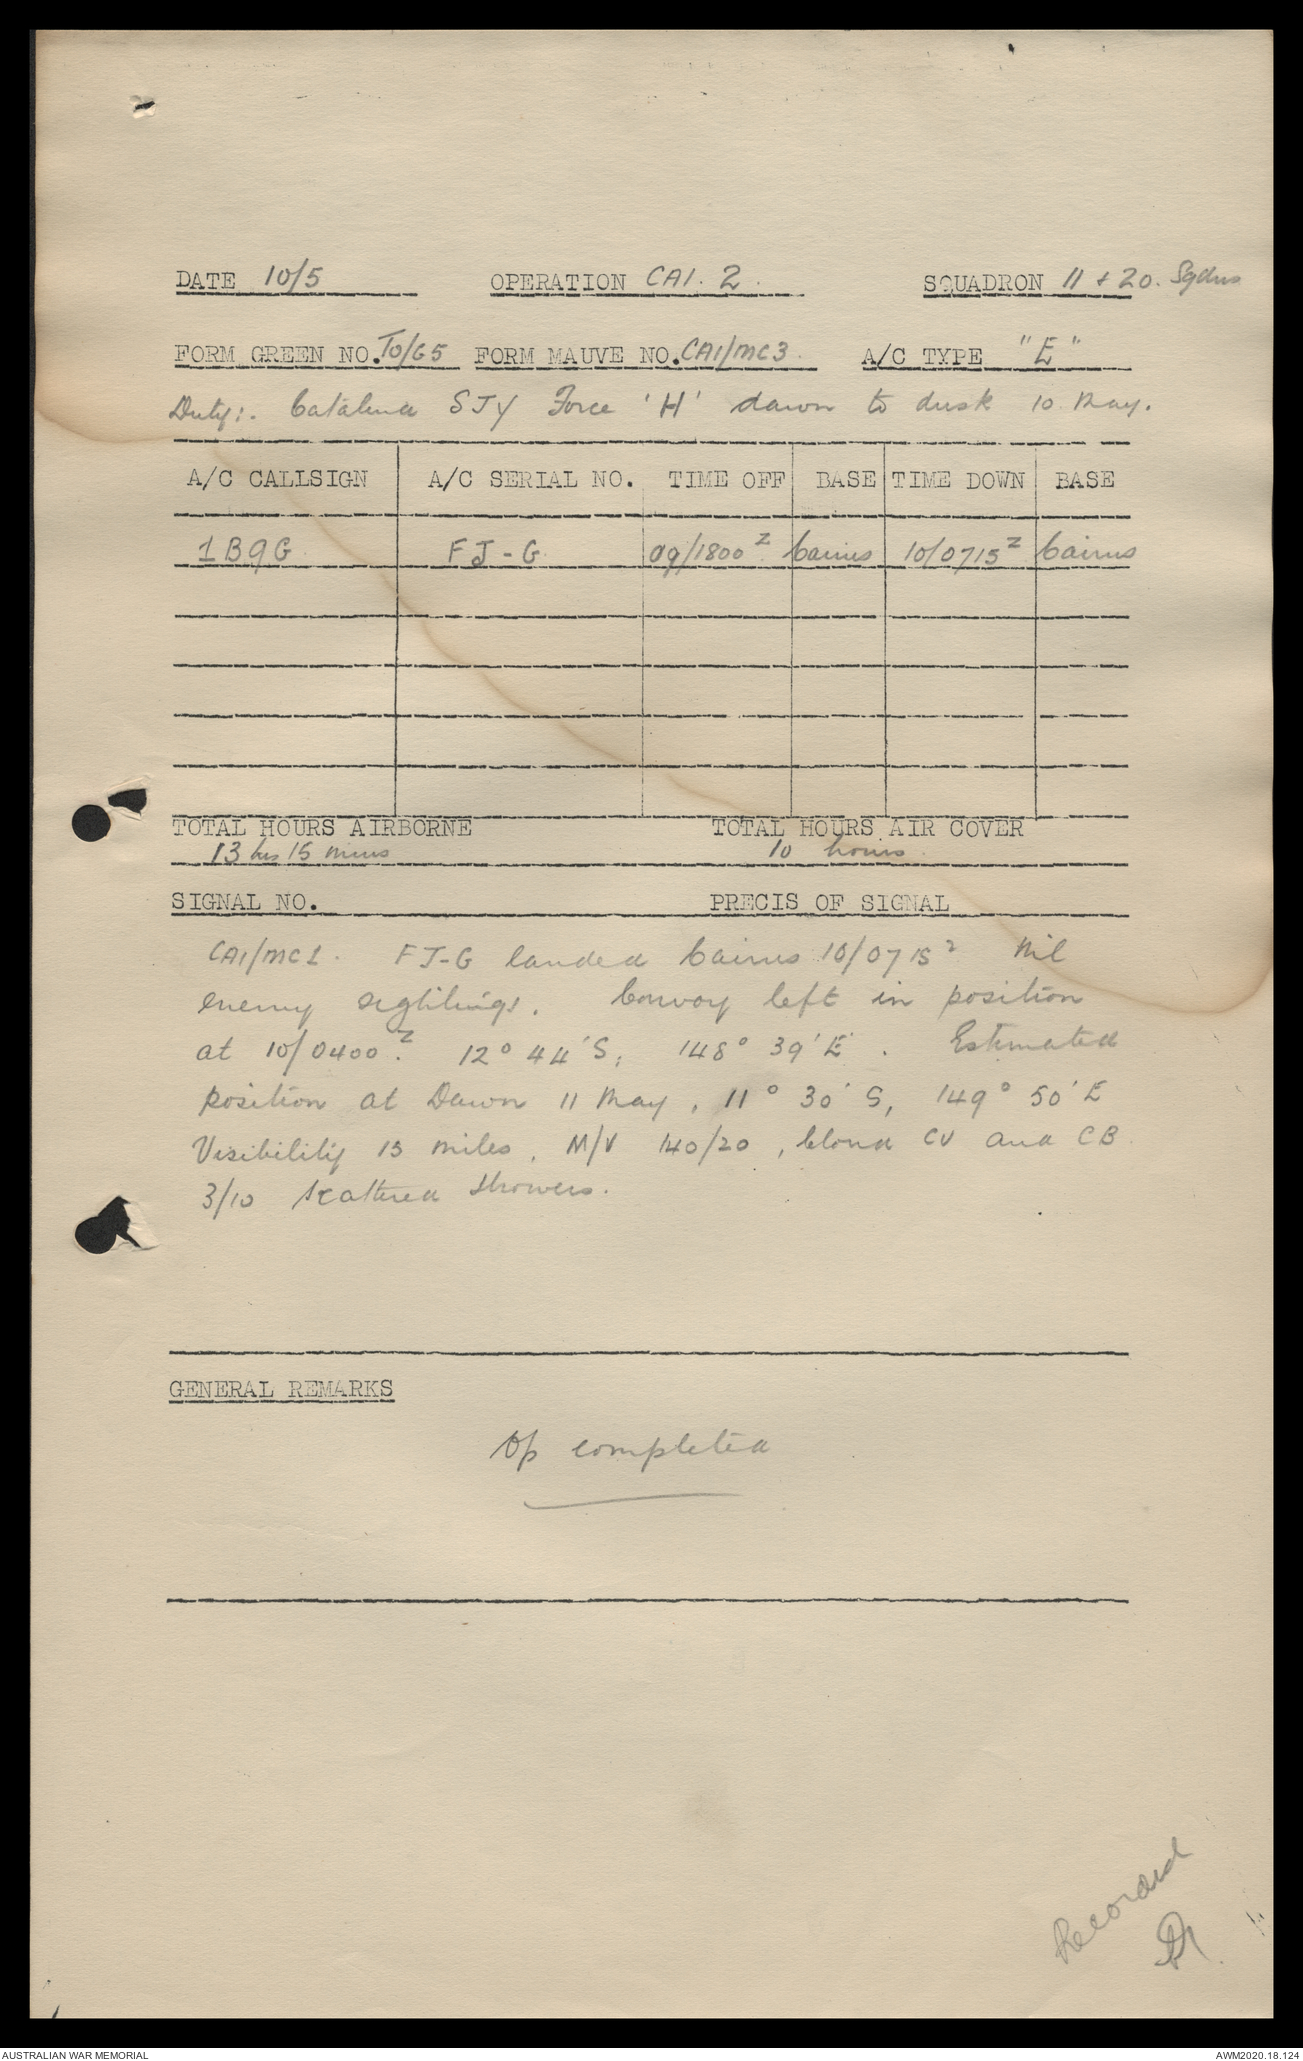 DATE 10/5 OPERATION CA1. 2. SQUADRON 11 + 20. Sqdns
FORM GREEN NO. TO/G5 FORM MAUVE NO. CA1/MC3. A/C TYPE "E"
Duty:- Catalina STY Force 'H' dawn to dusk 10 May.
A/C CALLSIGN A/C SERIAL NO. TIME OFF BASE TIME DOWN BASE
1B9G FJ-G 09/1800Z Cairns 10/0715Z Cairns
TOTAL HOURS AIRBORNE TOTAL HOURS AIR COVER
13 hrs 15 mins 10 hours.
SIGNAL NO. PRECIS OF SIGNAL
CA1/MC1. FJ-G landed Cairns 10/0715Z Nil
enemy sightings. Convoy left in position
at 10/0400Z. 12° 44'S, 148° 39'E. Estimated
position at Dawn 11 May, 11° 30' S, 149° 50' E
Visibility 15 miles, W/V 140/20, Cloud CU and CB
3/10 scattered showers.
GENERAL REMARKS
Op completed
Recorded
AUSTRALIAN WAR MEMORIAL AWM2020.18.124